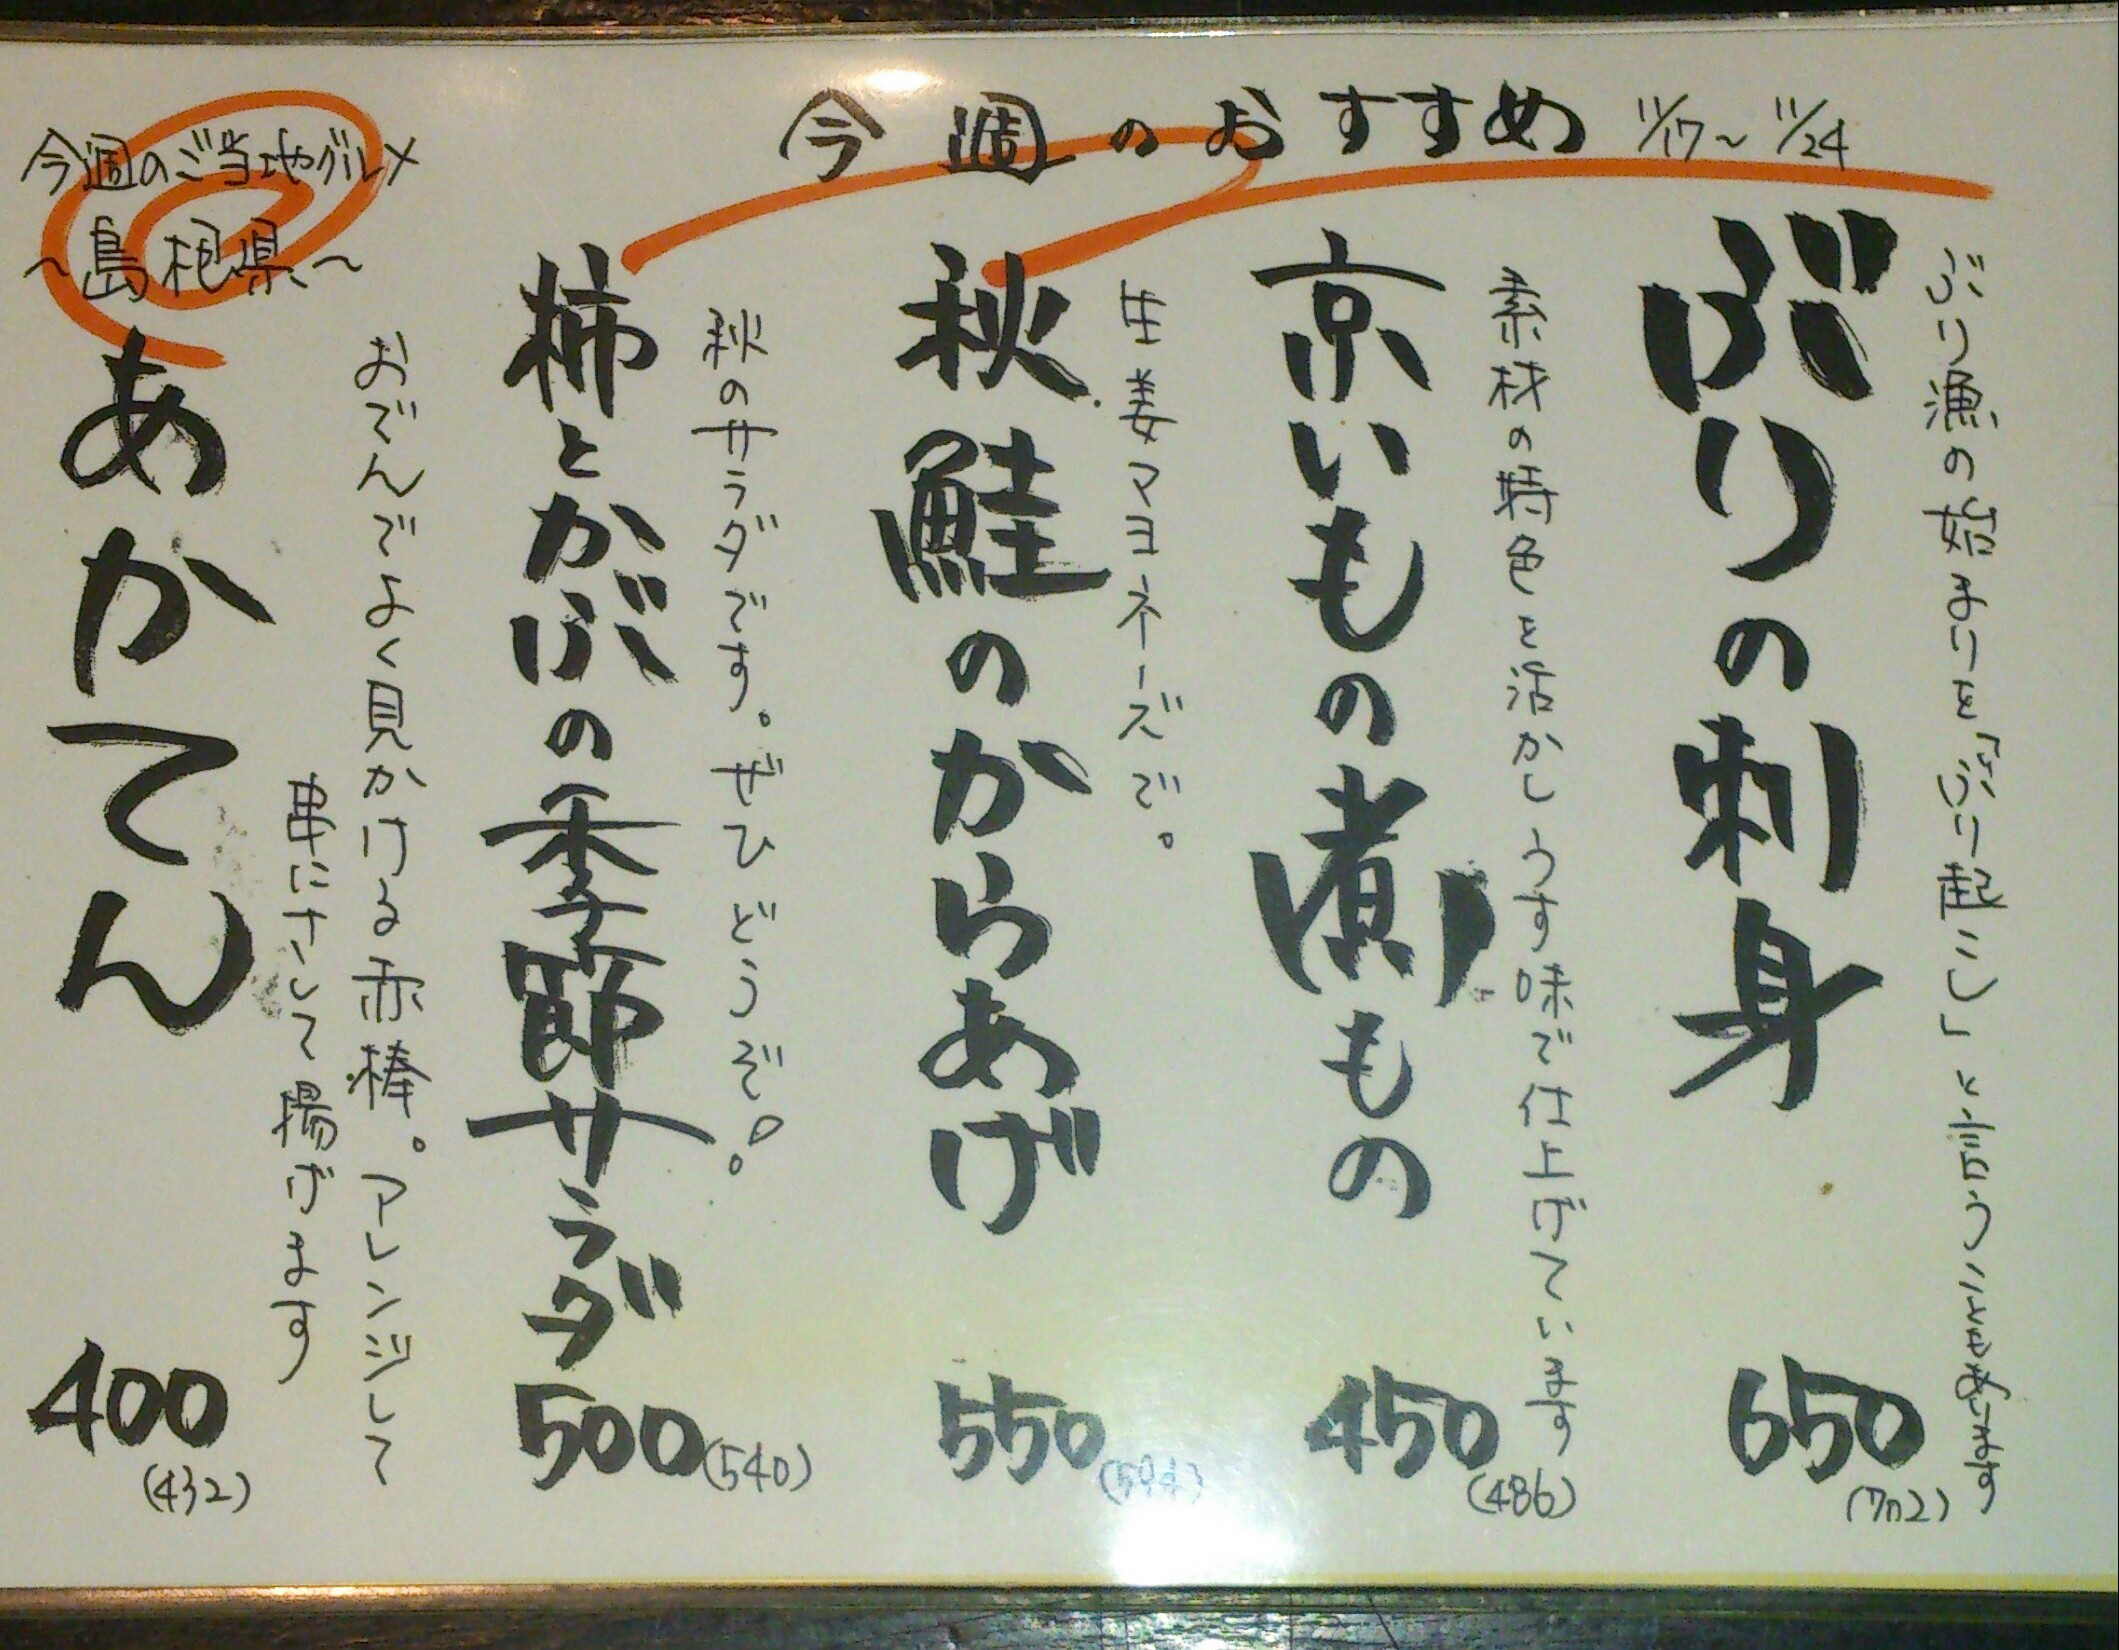 今週のおすすめ 11/17～11/24
ぶり漁の始まりを「ぶり起こし」と言うこともあります
ぶりの刺身
650
(702)
素材の特色を活かしうす味で仕上げています
京いもの煮もの
450
(486)
生姜マヨネーズで。
秋鮭のからあげ
550
(594)
秋のサラダです。ぜひどうぞ!。
柿とかぶの季節サラダ
500
(540)
今週のご当地グルメ
～島根県～
おでんでよく見かける赤棒。アレンジして
串にさして揚げます
あかてん
400
(432)